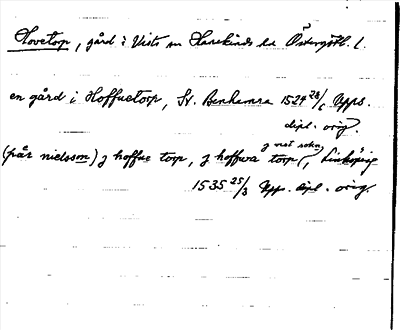 Hovetorp, gård i Vists sn Hanekinds hd Östergötl. l.
en gård i Hoffuetorp, St. Benhamra 1524 28/6 Upps.
dipl. orig.
j vist sokn
(pär nielsson) j hoffue torp, j hoffwa torp (, Linköping
1535 25/3 Upps. dipl. orig.